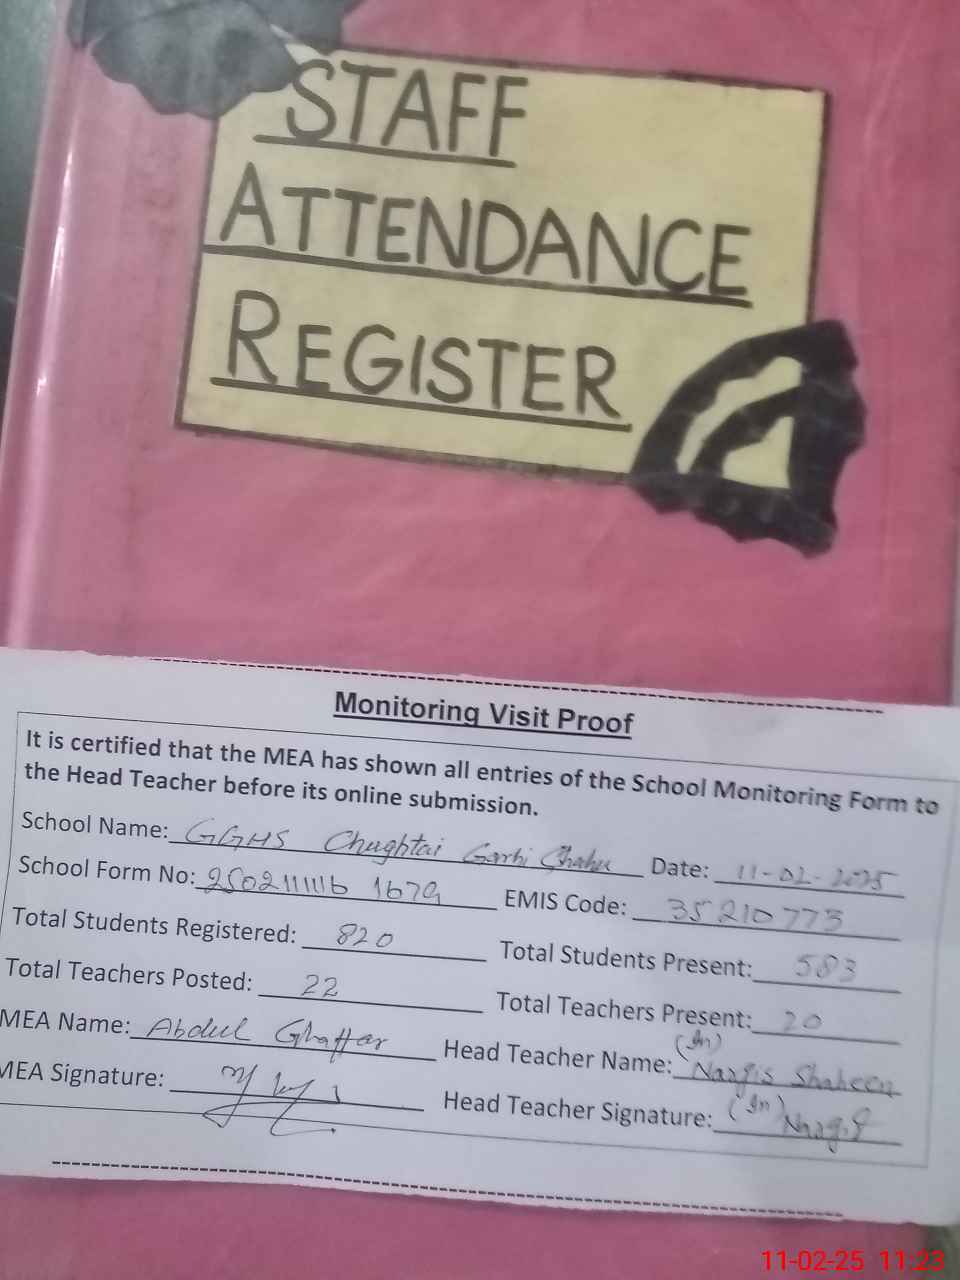 STAFF
ATTENDANCE
REGISTER
Monitoring Visit Proof
It is certified that the MEA has shown all entries of the School Monitoring Form to
the Head Teacher before its online submission.
School Name: GGHS Chughtai Garhi Shahu Date: 11-02-2025
School Form No: EMIS Code: 35210773
Total Students Registered: 820 Total Students Present: 583
Total Teachers Posted: 22 Total Teachers Present: 20
MEA Name: Abdul Ghaffar Head Teacher Name: (In) Nargis Shaheen
MEA Signature: Head Teacher Signature: (In) Nargis
11-02-25 11:23